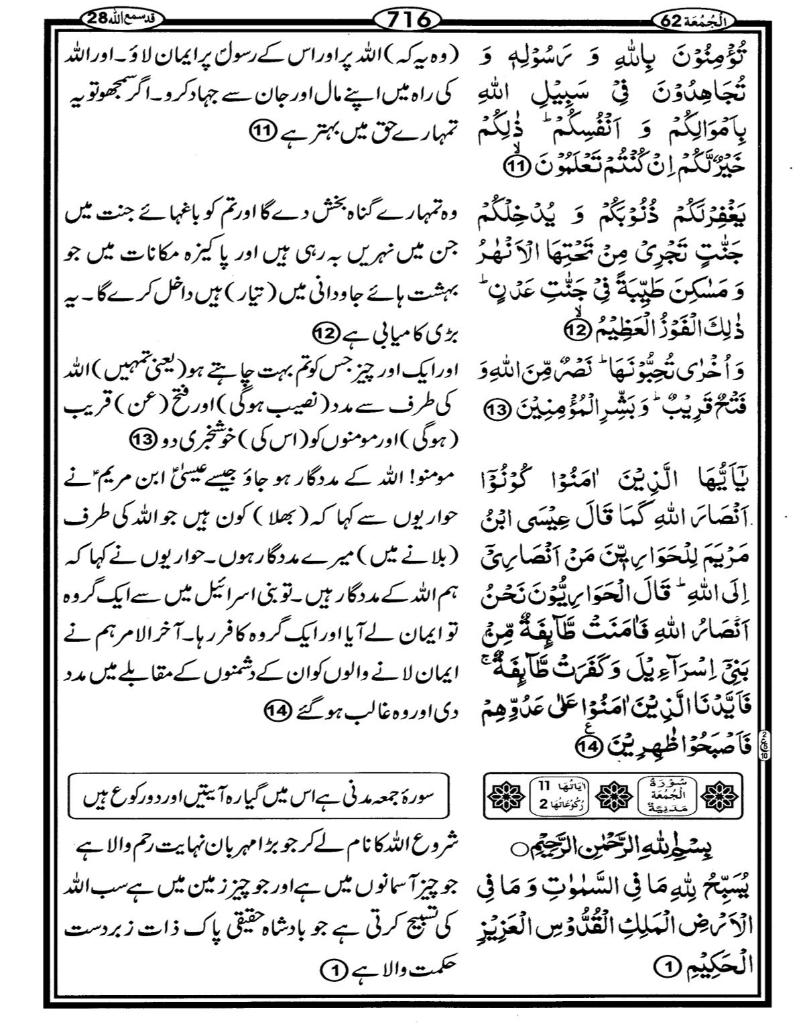 الْجُمُعَة 62
716
قد سمع الله 28
تُؤْمِنُوْنَ بِاللّٰهِ وَ رَسُوْلِهٖ وَ
تُجَاهِدُوْنَ فِیْ سَبِیْلِ اللّٰهِ
بِاَمْوَالِكُمْ وَ اَنْفُسِكُمْ ؕ ذٰلِكُمْ
خَیْرٌ لَّكُمْ اِنْ كُنْتُمْ تَعْلَمُوْنَ ۙ 11
(وہ یہ کہ) اللہ پر اور اس کے رسولؐ پر ایمان لاؤ۔ اور اللہ
کی راہ میں اپنے مال اور جان سے جہاد کرو۔ اگر سمجھو تو یہ
تمہارے حق میں بہتر ہے 11
یَغْفِرْ لَكُمْ ذُنُوْبَكُمْ وَ یُدْخِلْكُمْ
جَنّٰتٍ تَجْرِیْ مِنْ تَحْتِهَا الْاَنْهٰرُ
وَ مَسٰكِنَ طَیِّبَةً فِیْ جَنّٰتِ عَدْنٍ ؕ
ذٰلِكَ الْفَوْزُ الْعَظِیْمُ ۙ 12
وہ تمہارے گناہ بخش دے گا اور تم کو باغہائے جنت میں
جن میں نہریں بہ رہی ہیں اور پاکیزہ مکانات میں جو
بہشت ہائے جاودانی میں (تیار) ہیں داخل کرے گا۔ یہ
بڑی کامیابی ہے 12
وَ اُخْرٰی تُحِبُّوْنَهَا ؕ نَصْرٌ مِّنَ اللّٰهِ وَ
فَتْحٌ قَرِیْبٌ ؕ وَ بَشِّرِ الْمُؤْمِنِیْنَ 13
اور ایک اور چیز جس کو تم بہت چاہتے ہو (یعنی تمہیں) اللہ
کی طرف سے مدد (نصیب ہوگی) اور فتح (عن) قریب
(ہوگی) اور مومنوں کو (اس کی) خوشخبری دو 13
یٰۤاَیُّهَا الَّذِیْنَ اٰمَنُوْا كُوْنُوْۤا
اَنْصَارَ اللّٰهِ كَمَا قَالَ عِیْسَی ابْنُ
مَرْیَمَ لِلْحَوَارِیّٖنَ مَنْ اَنْصَارِیْۤ
اِلَی اللّٰهِ ؕ قَالَ الْحَوَارِیُّوْنَ نَحْنُ
اَنْصَارُ اللّٰهِ فَاٰمَنَتْ طَّآىِٕفَةٌ مِّنْۢ
بَنِیْۤ اِسْرَآءِیْلَ وَ كَفَرَتْ طَّآىِٕفَةٌ ۚ
فَاَیَّدْنَا الَّذِیْنَ اٰمَنُوْا عَلٰی عَدُوِّهِمْ
فَاَصْبَحُوْا ظٰهِرِیْنَ ع 14
مومنو! اللہ کے مددگار ہو جاؤ جیسے عیسیٰؑ ابن مریمؑ نے
حواریوں سے کہا کہ (بھلا) کون ہیں جو اللہ کی طرف
(بلانے میں) میرے مددگار ہوں۔ حواریوں نے کہا کہ
ہم اللہ کے مددگار ہیں۔ تو بنی اسرائیل میں سے ایک گروہ
تو ایمان لے آیا اور ایک گروہ کافر رہا۔ آخر الامر ہم نے
ایمان لانے والوں کو ان کے دشمنوں کے مقابلے میں مدد
دی اور وہ غالب ہو گئے 14
سُوْرَةُ الْجُمُعَة مَدَنِيَّة
اٰيَاتُهَا 11
رُكُوْعَاتُهَا 2
سورۂ جمعہ مدنی ہے اس میں گیارہ آیتیں اور دو رکوع ہیں
بِسْمِ اللّٰهِ الرَّحْمٰنِ الرَّحِیْمِ
شروع اللہ کا نام لے کر جو بڑا مہربان نہایت رحم والا ہے
یُسَبِّحُ لِلّٰهِ مَا فِی السَّمٰوٰتِ وَ مَا فِی
الْاَرْضِ الْمَلِكِ الْقُدُّوْسِ الْعَزِیْزِ
الْحَكِیْمِ 1
جو چیز آسمانوں میں ہے اور جو چیز زمین میں ہے سب اللہ
کی تسبیح کرتی ہے جو بادشاہ حقیقی پاک ذات زبردست
حکمت والا ہے 1